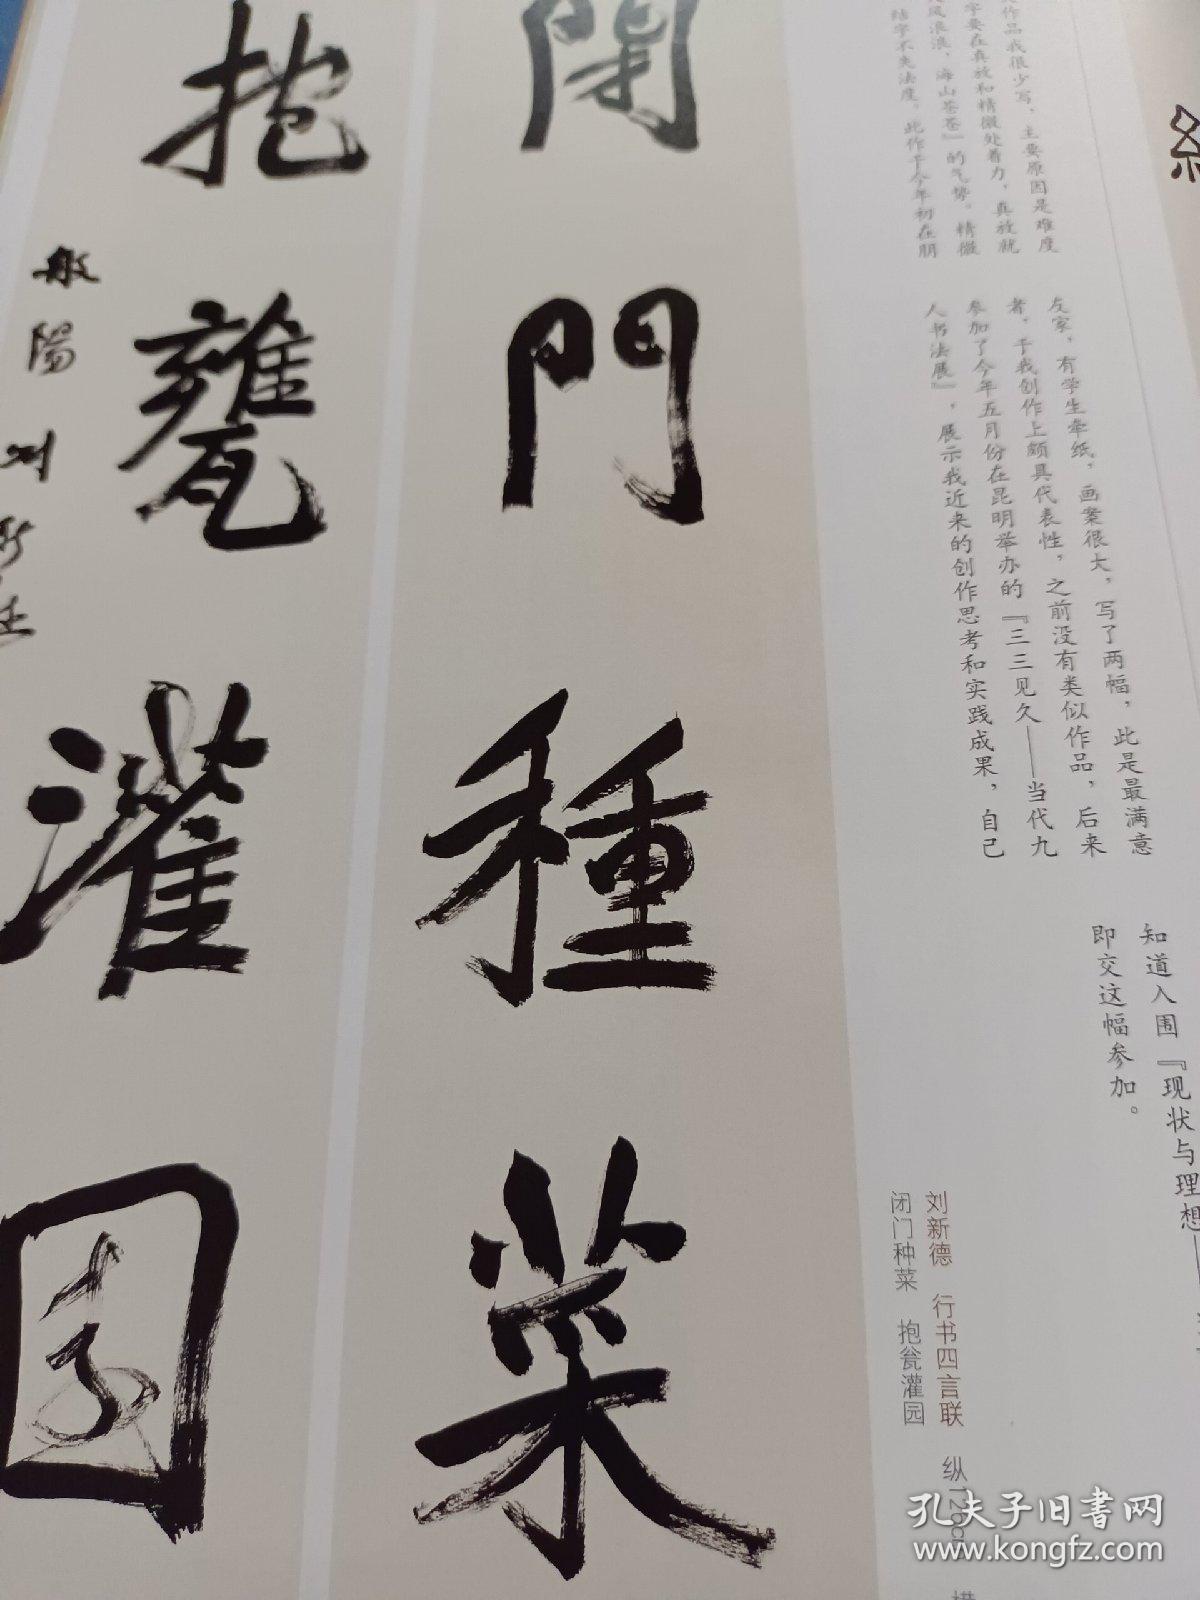 閉門種菜
抱甕灌園
作品我很少写，主要原因是难度
字要在真放和精微处着力，真放就
风浪浪，海山苍苍』的气势。精微
结字不失法度。此作于今年初在朋
友家，有学生牵纸，画案很大，写了两幅，此是最满意
者，于我创作上颇具代表性，之前没有类似作品，后来
参加了今年五月份在昆明举办的『三三见久——当代九
人书法展』，展示我近来的创作思考和实践成果，自己
知道入围『现状与理想——
即交这幅参加。
刘新德 行书四言联 纵128cm 横
闭门种菜 抱瓮灌园
孔夫子旧书网
www.kongfz.com